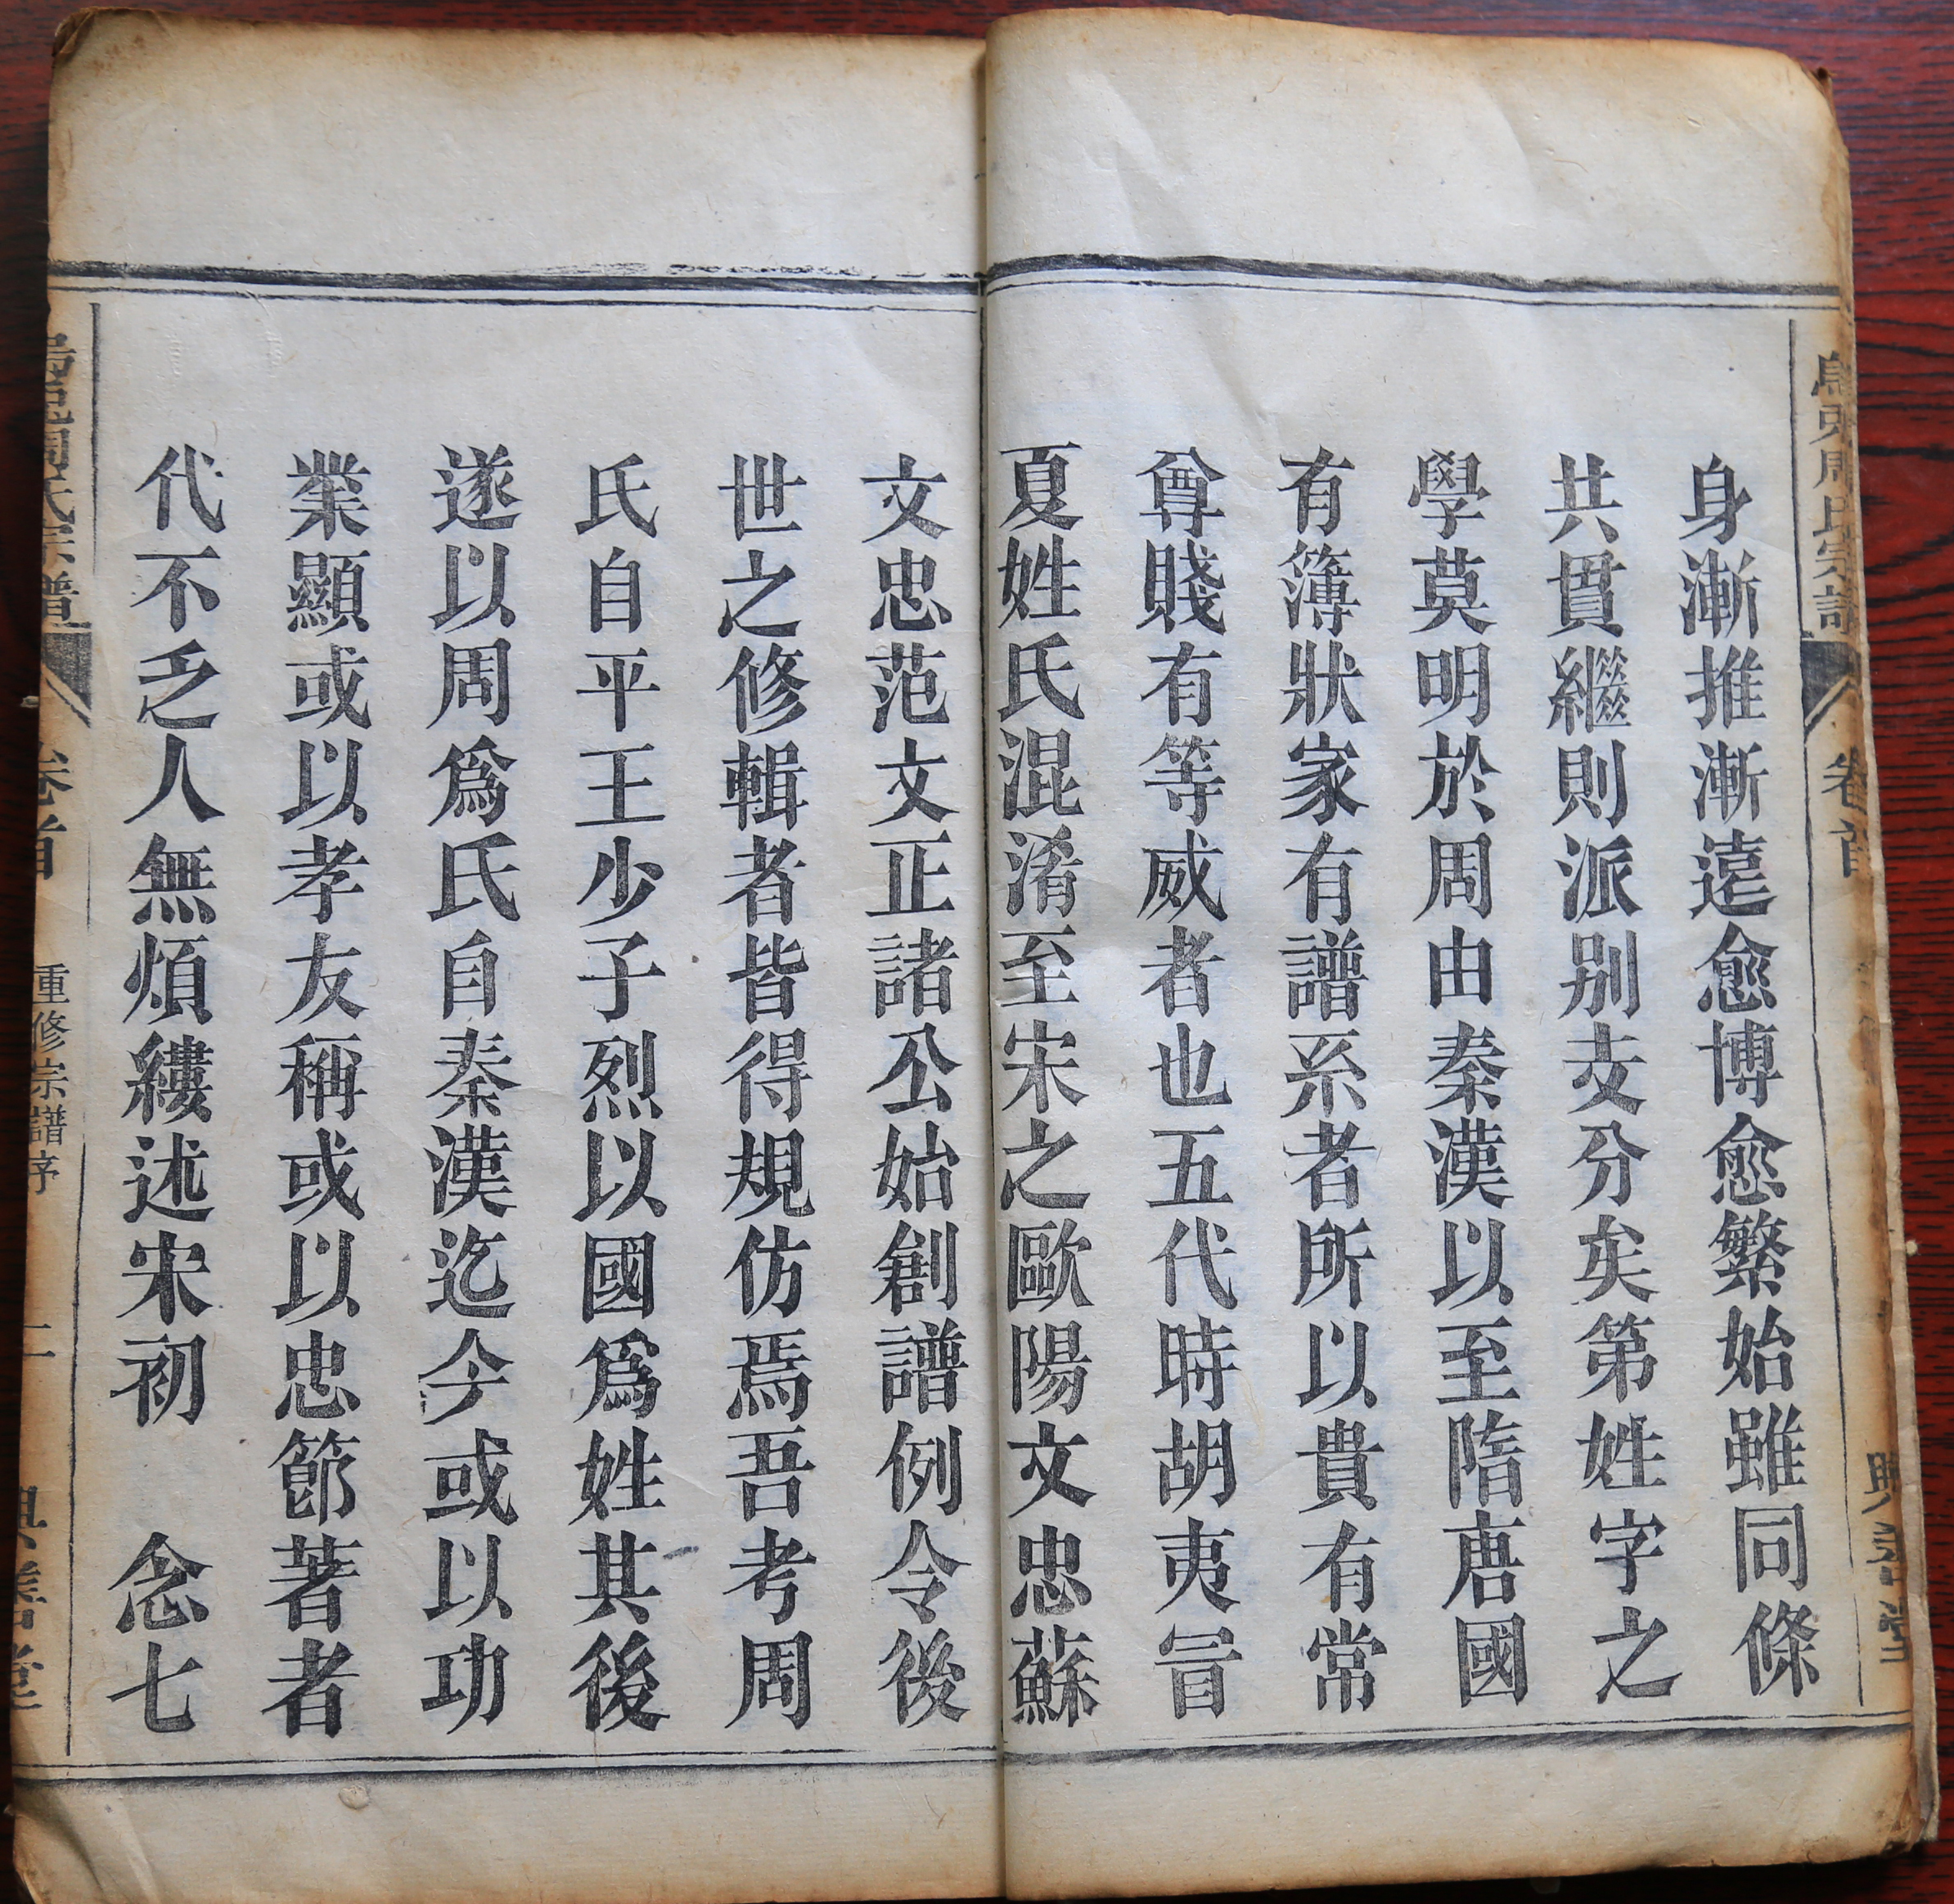 周氏宗
卷首
身漸推漸遠愈博愈繁始雖同條
共貫繼則派别支分矣第姓字之
學莫明於周由秦漢以至隋唐國
有簿狀家有譜系者所以貴有常
尊賤有等威者也五代時胡夷冒
夏姓氏混淆至宋之歐陽文忠蘇
文忠范文正諸公始創譜例令後
世之修輯者皆得規仿焉吾考周
氏自平王少子烈以國爲姓其後
遂以周爲氏自秦漢迄今或以功
業顯或以孝友稱或以忠節著者
代不乏人無煩縷述宋初 念七
周氏宗譜
卷首
重修宗譜序
二
善堂